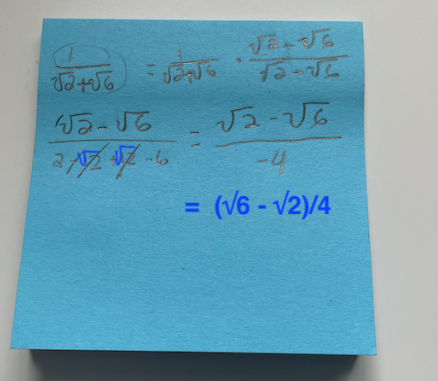 1/(√2+√6) = 1/(√2+√6) · (√2-√6)/(√2-√6)
(√2-√6)/(2-√12+√12-6) = (√2-√6)/-4
= (√6 - √2)/4